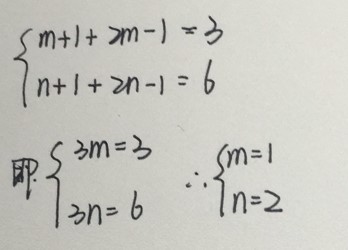 m+1+2m-1=3
n+1+2n-1=6
即 3m=3 ∴ m=1
3n=6 n=2